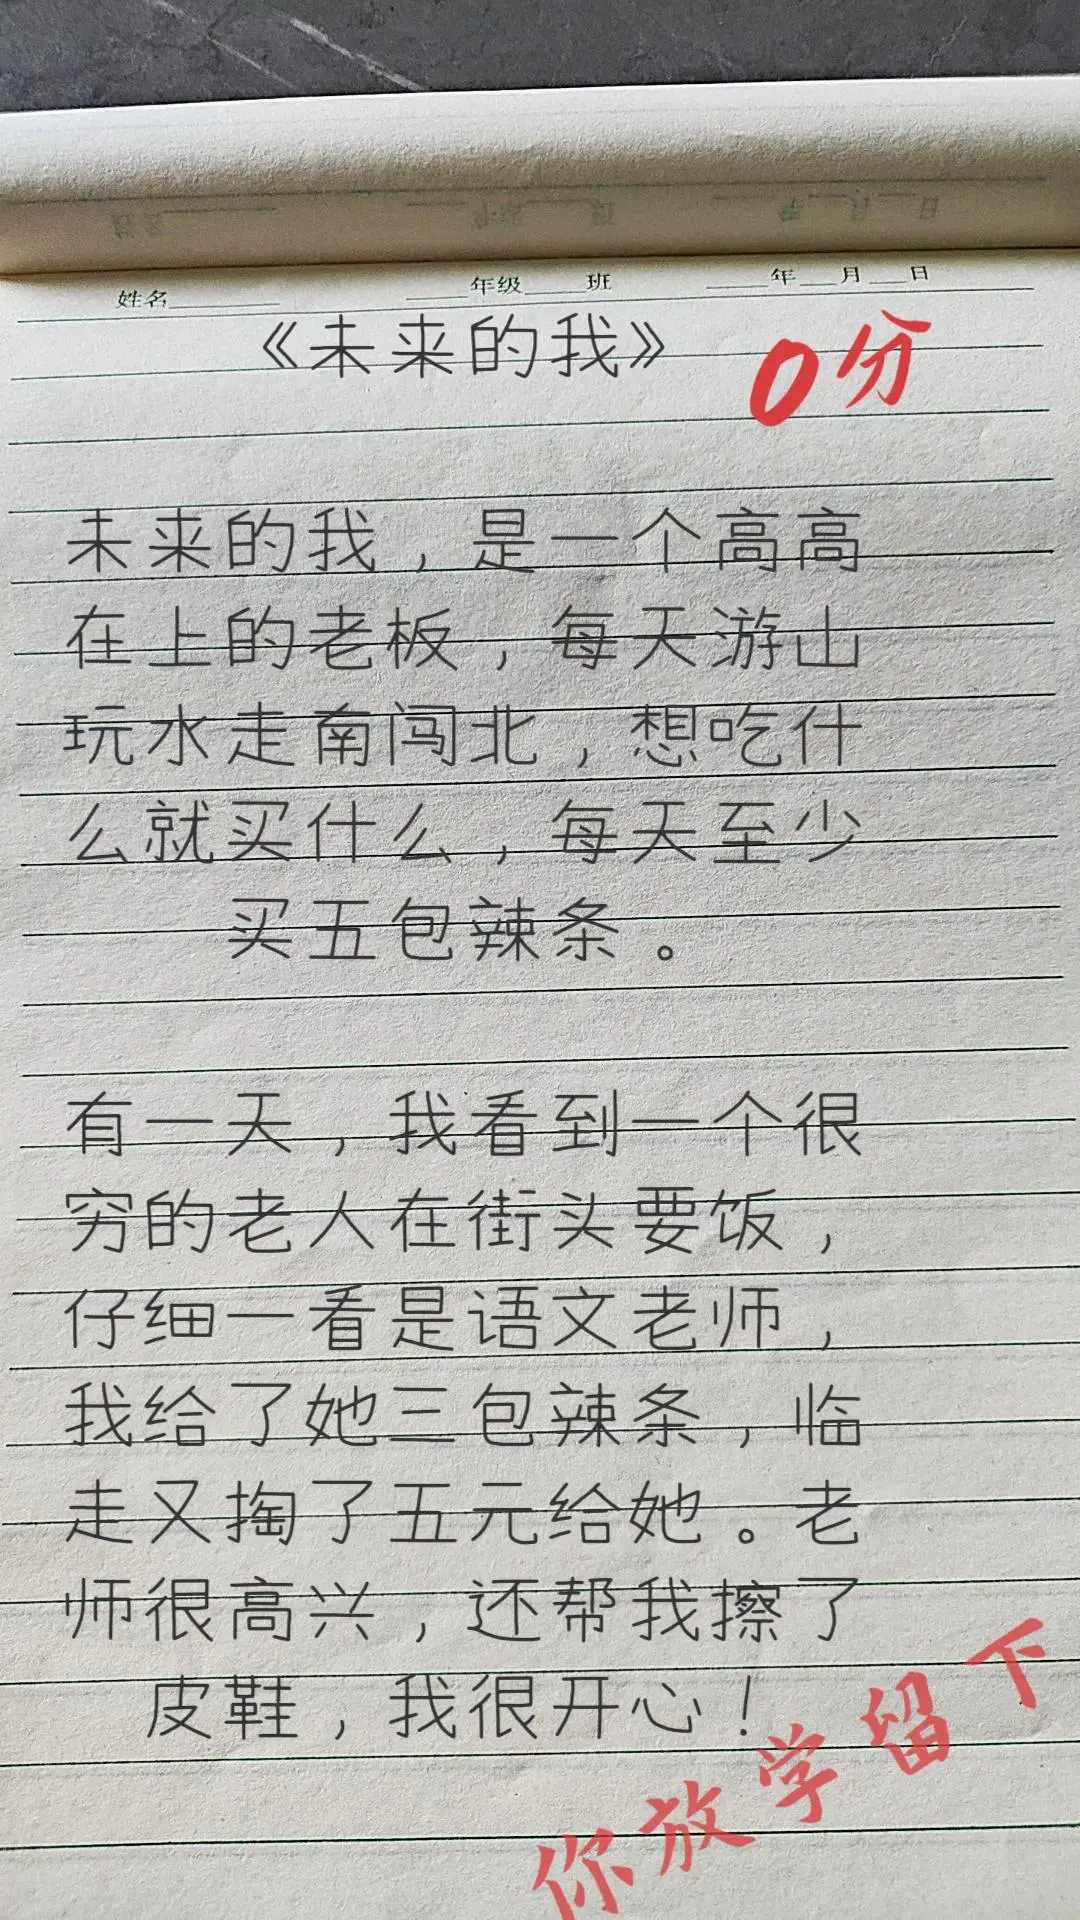 姓名______ ____年级____班 ____年___月___日
《未来的我》
0分
未来的我，是一个高高
在上的老板，每天游山
玩水走南闯北，想吃什
么就买什么，每天至少
买五包辣条。
有一天，我看到一个很
穷的老人在街头要饭，
仔细一看是语文老师，
我给了她三包辣条，临
走又掏了五元给她。老
师很高兴，还帮我擦了
皮鞋，我很开心！
你放学留下